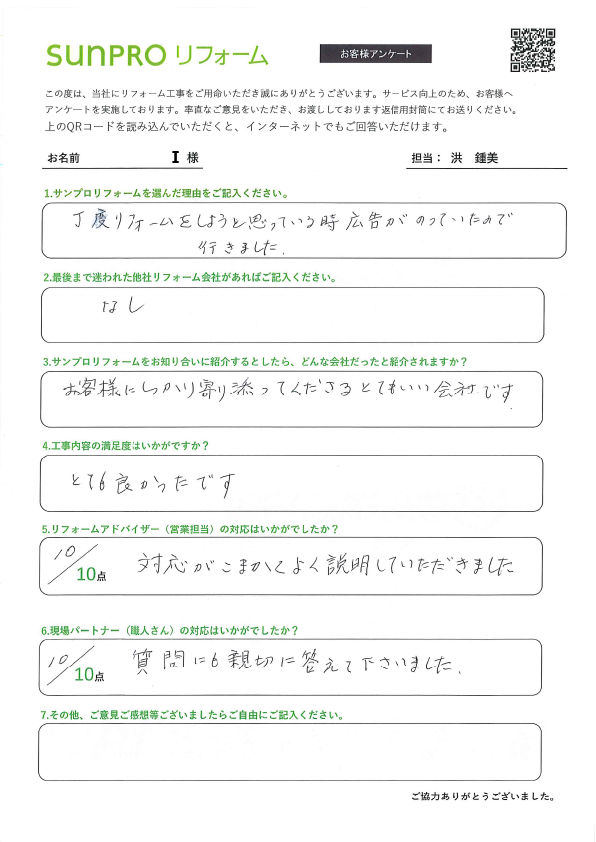 sunpro リフォーム
お客様アンケート
この度は、当社にリフォーム工事をご用命いただき誠にありがとうございます。サービス向上のため、お客様へ
アンケートを実施しております。率直なご意見をいただき、お渡ししております返信用封筒にてお送りください。
上のQRコードを読み込んでいただくと、インターネットでもご回答いただけます。
お名前 I 様 担当： 洪 鍾美
1.サンプロリフォームを選んだ理由をご記入ください。
丁度リフォームをしようと思っている時広告がのっていたので
行きました.
2.最後まで迷われた他社リフォーム会社があればご記入ください。
なし
3.サンプロリフォームをお知り合いに紹介するとしたら、どんな会社だったと紹介されますか？
お客様にしっかり寄り添ってくださるとてもいい会社です.
4.工事内容の満足度はいかがですか？
とても良かったです
5.リフォームアドバイザー（営業担当）の対応はいかがでしたか？
10/10点 対応がこまかくてよく説明していただきました
6.現場パートナー（職人さん）の対応はいかがでしたか？
10/10点 質問にも親切に答えて下さいました.
7.その他、ご意見ご感想等ございましたらご自由にご記入ください。
ご協力ありがとうございました。